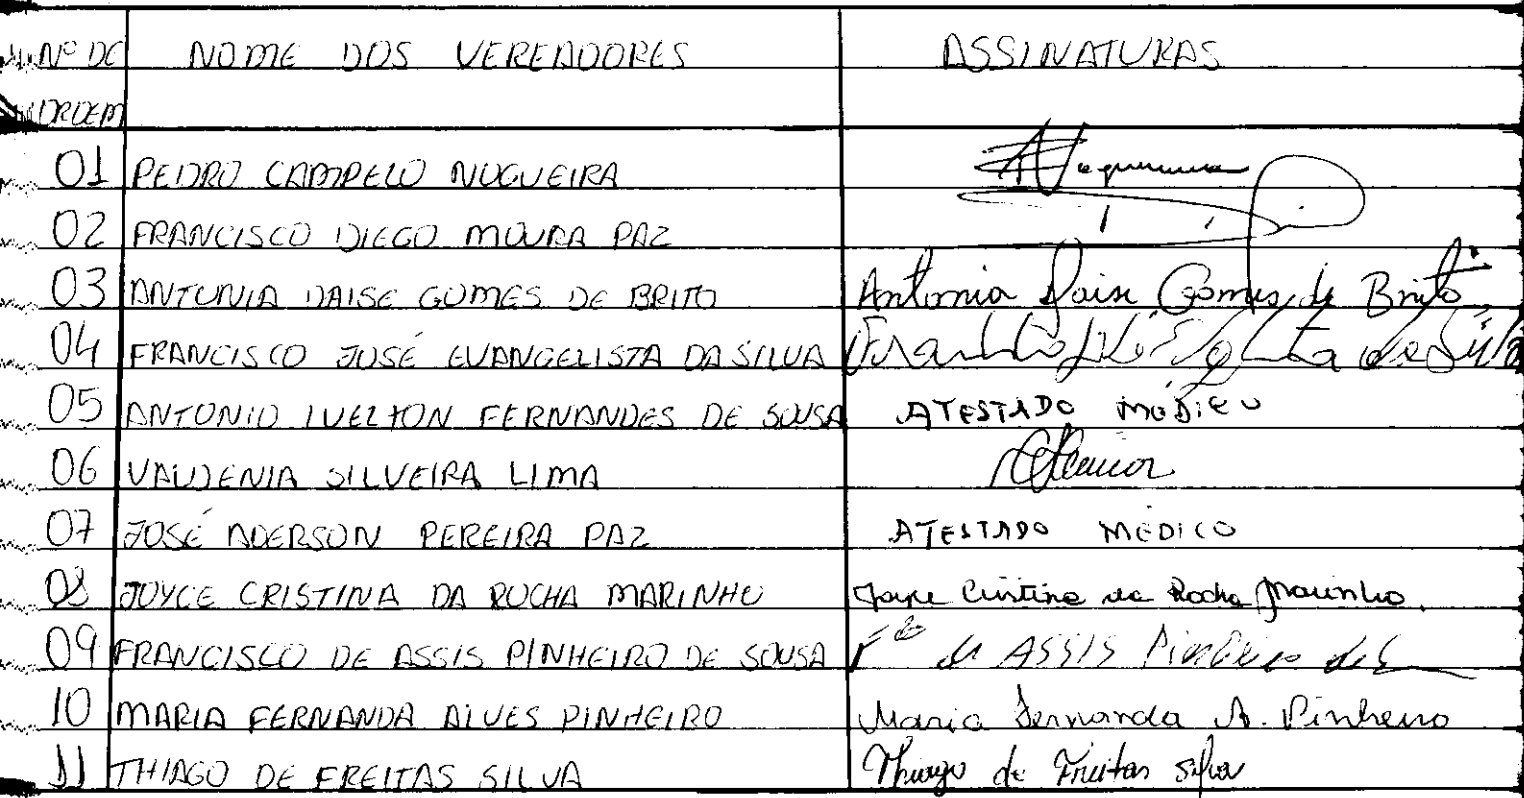 Nº DE NOME DOS VEREADORES ASSINATURAS
ORDEM
01 PEDRO CAMPELO NOGUEIRA
02 FRANCISCO DIEGO MOURA PAZ
03 ANTONIA DAISE GOMES DE BRITO Antonia Daise Gomes de Brito
04 FRANCISCO JOSÉ EVANGELISTA DA SILVA
05 ANTONIO IVELTON FERNANDES DE SOUSA ATESTADO MÉDICO
06 VALDENIA SILVEIRA LIMA
07 JOSÉ ADERSON PEREIRA PAZ ATESTADO MÉDICO
08 JOYCE CRISTINA DA ROCHA MARINHO Joyce Cristina da Rocha Marinho.
09 FRANCISCO DE ASSIS PINHEIRO DE SOUSA Fco de ASSIS Pinheiro de S
10 MARIA FERNANDA ALVES PINHEIRO Maria Fernanda A. Pinheiro
11 THIAGO DE FREITAS SILVA Thiago de Freitas Silva